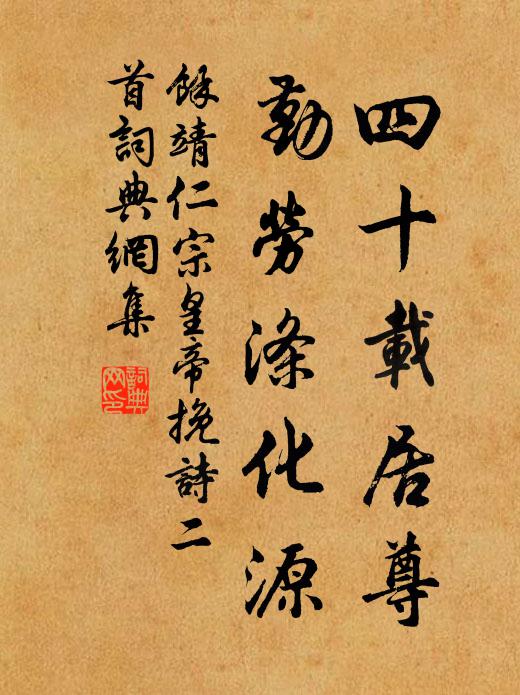 四十載居尊
勤勞滌化源
餘靖仁宗皇帝挽詩二
首詞典網集
詞典
网印